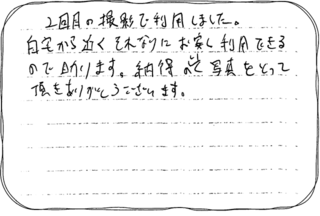 2回目の撮影で利用しました。
自宅から近くそれなりにお安く利用できる
ので助かります。納得の写真をとって
頂きありがとうございます。